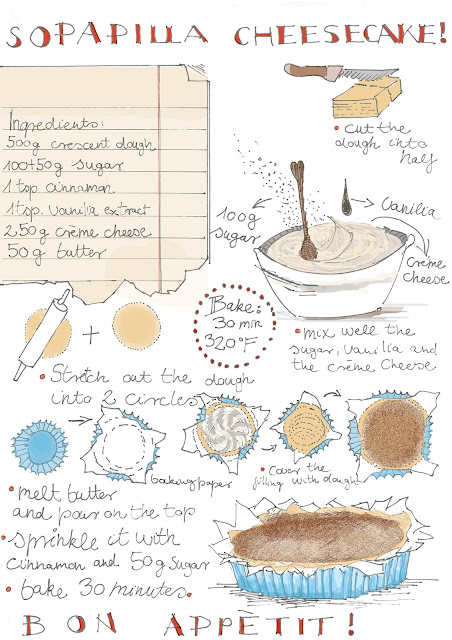 SOPAPILLA CHEESECAKE!
Ingredients:
500g crescent dough
100+50g sugar
1 tsp cinnamon
1 tsp. vanilia extract
250g crème cheese
50g butter
• cut the
dough into
half
100g
sugar
Vanilia
Crème
Cheese
• mix well the
sugar, vanilia and
the crème cheese
Bake:
30 min
320°F
+
• Stretch out the dough
into 2 circles
baking paper
• Cover the
filling with dough
• melt butter
and pour on the top
• sprinkle it with
cinnamon and 50g sugar
• bake 30 minutes.
BON APPÈTIT!